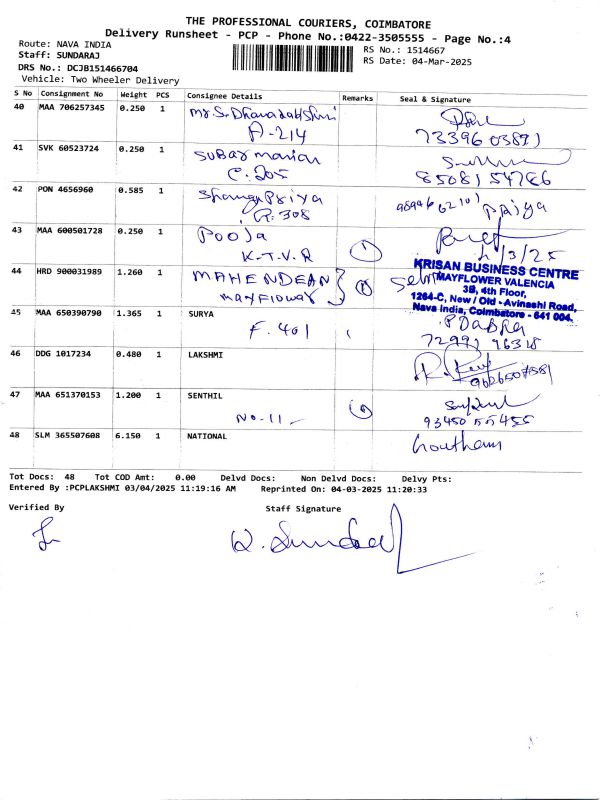 THE PROFESSIONAL COURIERS, COIMBATORE
Delivery Runsheet - PCP - Phone No.:0422-3505555 - Page No.:4
Route: NAVA INDIA
RS No.: 1514667
Staff: SUNDARAJ
RS Date: 04-Mar-2025
DRS No.: DCJB151466704
Vehicle: Two Wheeler Delivery
S No Consignment No Weight PCS Consignee Details Remarks Seal & Signature
40 MAA 706257345 0.250 1 Mr.S.
A-214
41 SVK 60523724 0.250 1
C.205
85081 54786
42 PON 4656960 0.585 1 Priya
308 Priya
43 MAA 600501728 0.250 1 Pooja
K.T.V.R 1 /3/25
KRISAN BUSINESS CENTRE
44 HRD 900031989 1.260 1 MAHENDRAN
MAYFLOWER VALENCIA
3B, 4th Floor,
1264-C, New / Old - Avinashi Road,
Nava India, Coimbatore - 641 004.
45 MAA 650390790 1.365 1 SURYA
F. 401
46 DDG 1017234 0.480 1 LAKSHMI
9626507581
47 MAA 651370153 1.200 1 SENTHIL
No-11
48 SLM 365507608 6.150 1 NATIONAL Goutham
Tot Docs: 48 Tot COD Amt: 0.00 Delvd Docs: Non Delvd Docs: Delvy Pts:
Entered By :PCPLAKSHMI 03/04/2025 11:19:16 AM Reprinted On: 04-03-2025 11:20:33
Verified By Staff Signature